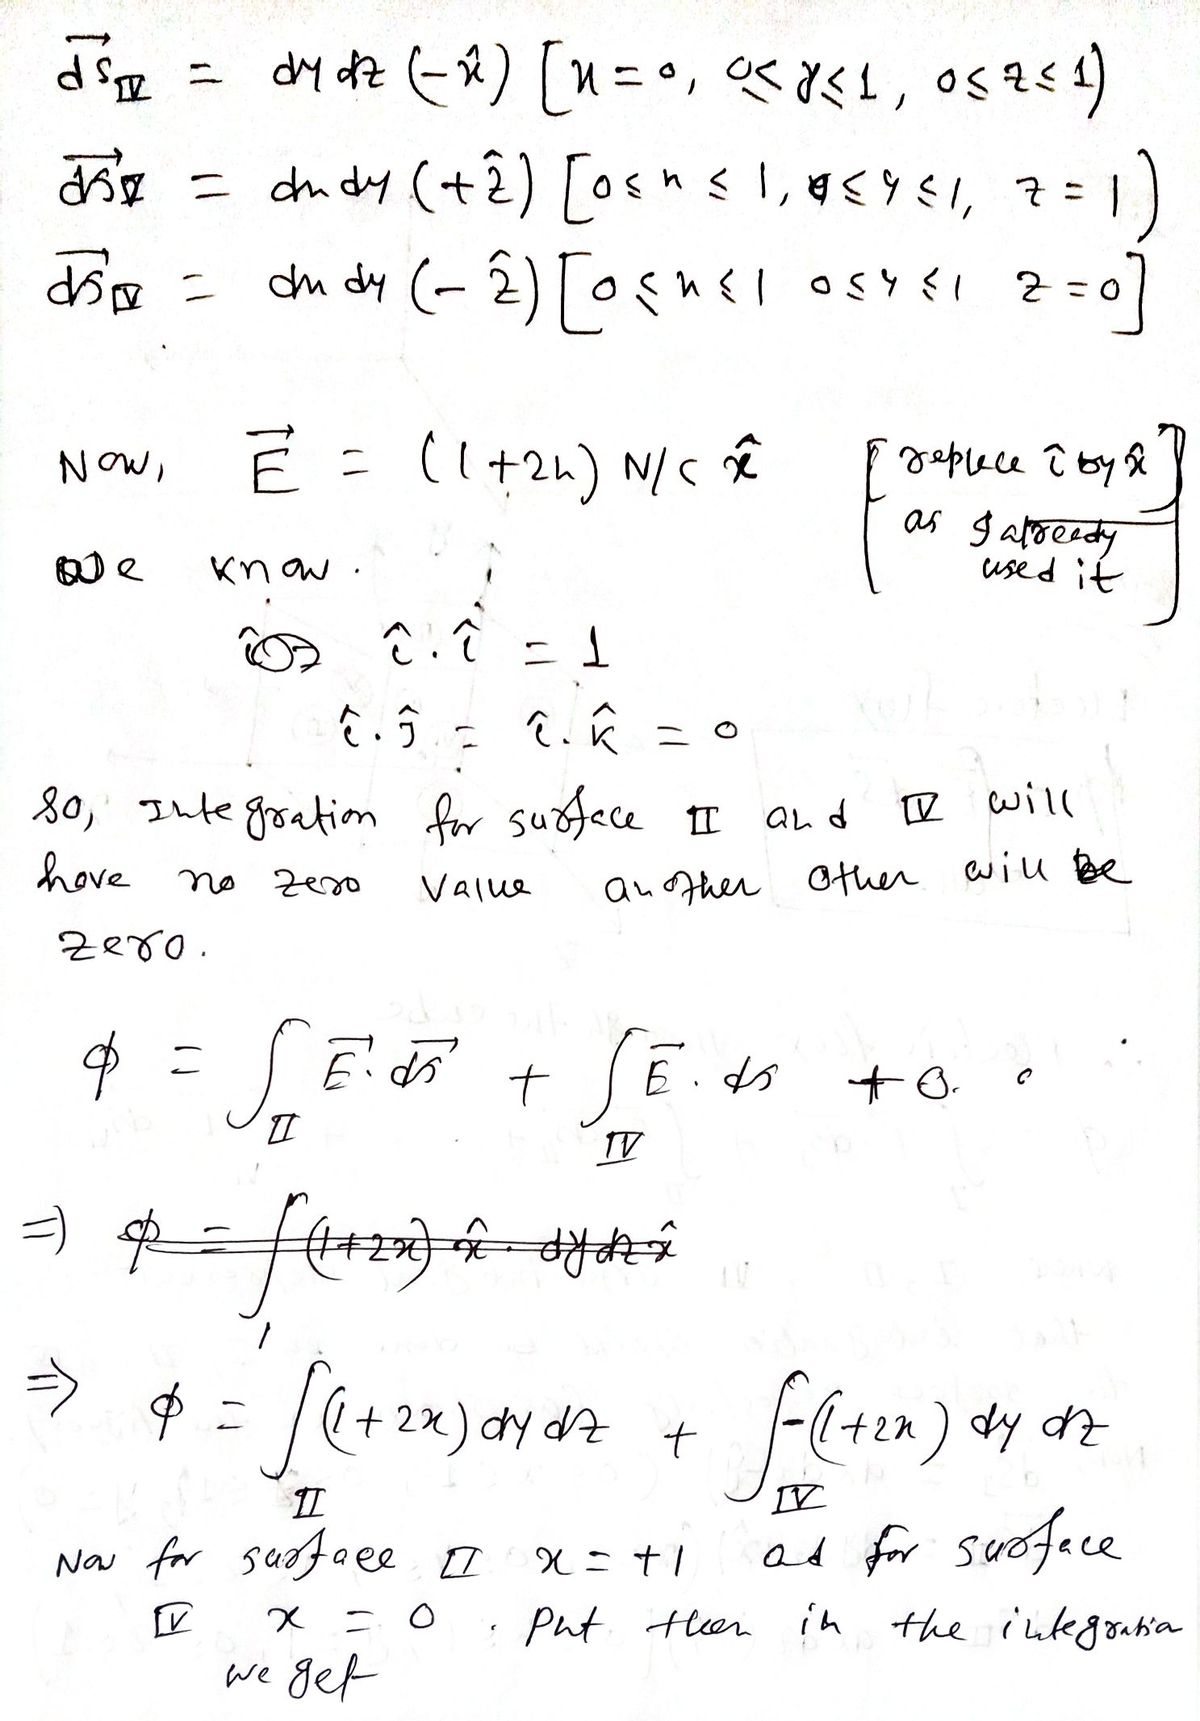 ds⃗_IV = dy dz (-x̂) [x = 0, 0 ≤ y ≤ 1, 0 ≤ z ≤ 1)
ds⃗_V = dx dy (+ẑ) [0 ≤ x ≤ 1, 0 ≤ y ≤ 1, z = 1)
ds⃗_IV = dx dy (-ẑ) [0 ≤ x ≤ 1 0 ≤ y ≤ 1 z = 0]
Now, E⃗ = (1+2x) N/C x̂ [replace î by x̂
as I already
used it]
we know.
î.î = 1
î.ĵ = î.k̂ = 0
So, Integration for surface II and IV will
have no zero value another other will be
zero.
φ = ∫_II E⃗.ds⃗ + ∫_IV E⃗.ds + 0.
=> φ = ∫(1+2x) x̂. dy dz x̂
=> φ = ∫_II (1+2x) dy dz + ∫_IV -(1+2x) dy dz
Now for surface II x = +1 ad for surface
IV x = 0. Put then in the integration
we get